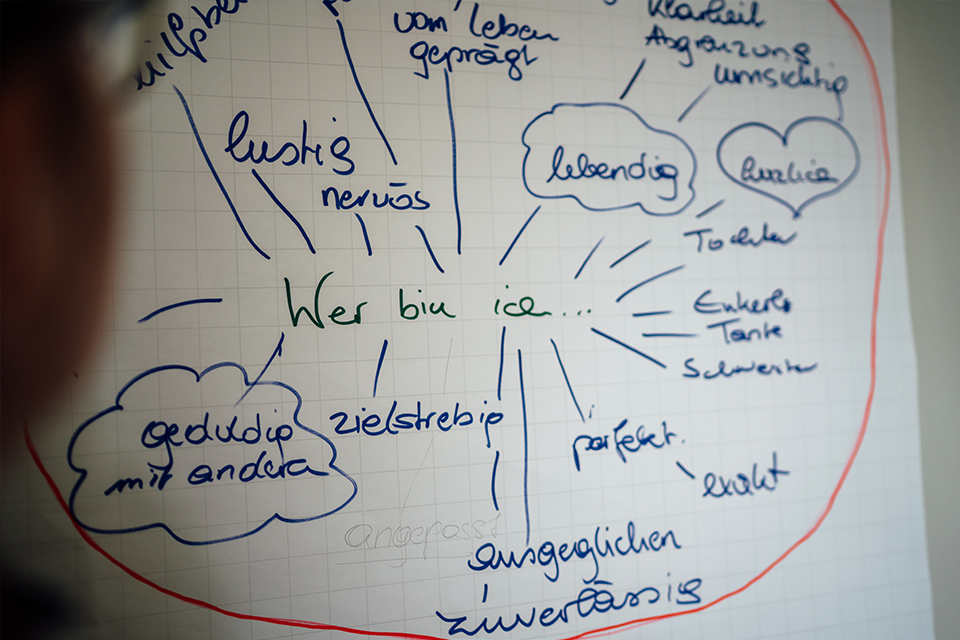 vom leben
geprägt
Klarheit
Abgrenzung
umsichtig
lustig
nervös
lebendig
herzlich
Tochter
Wer bin ich...
Enkerl
Tante
Schwester
geduldig
mit andern
zielstrebig
perfekt.
exakt
angepasst
ausgeglichen
zuverlässig